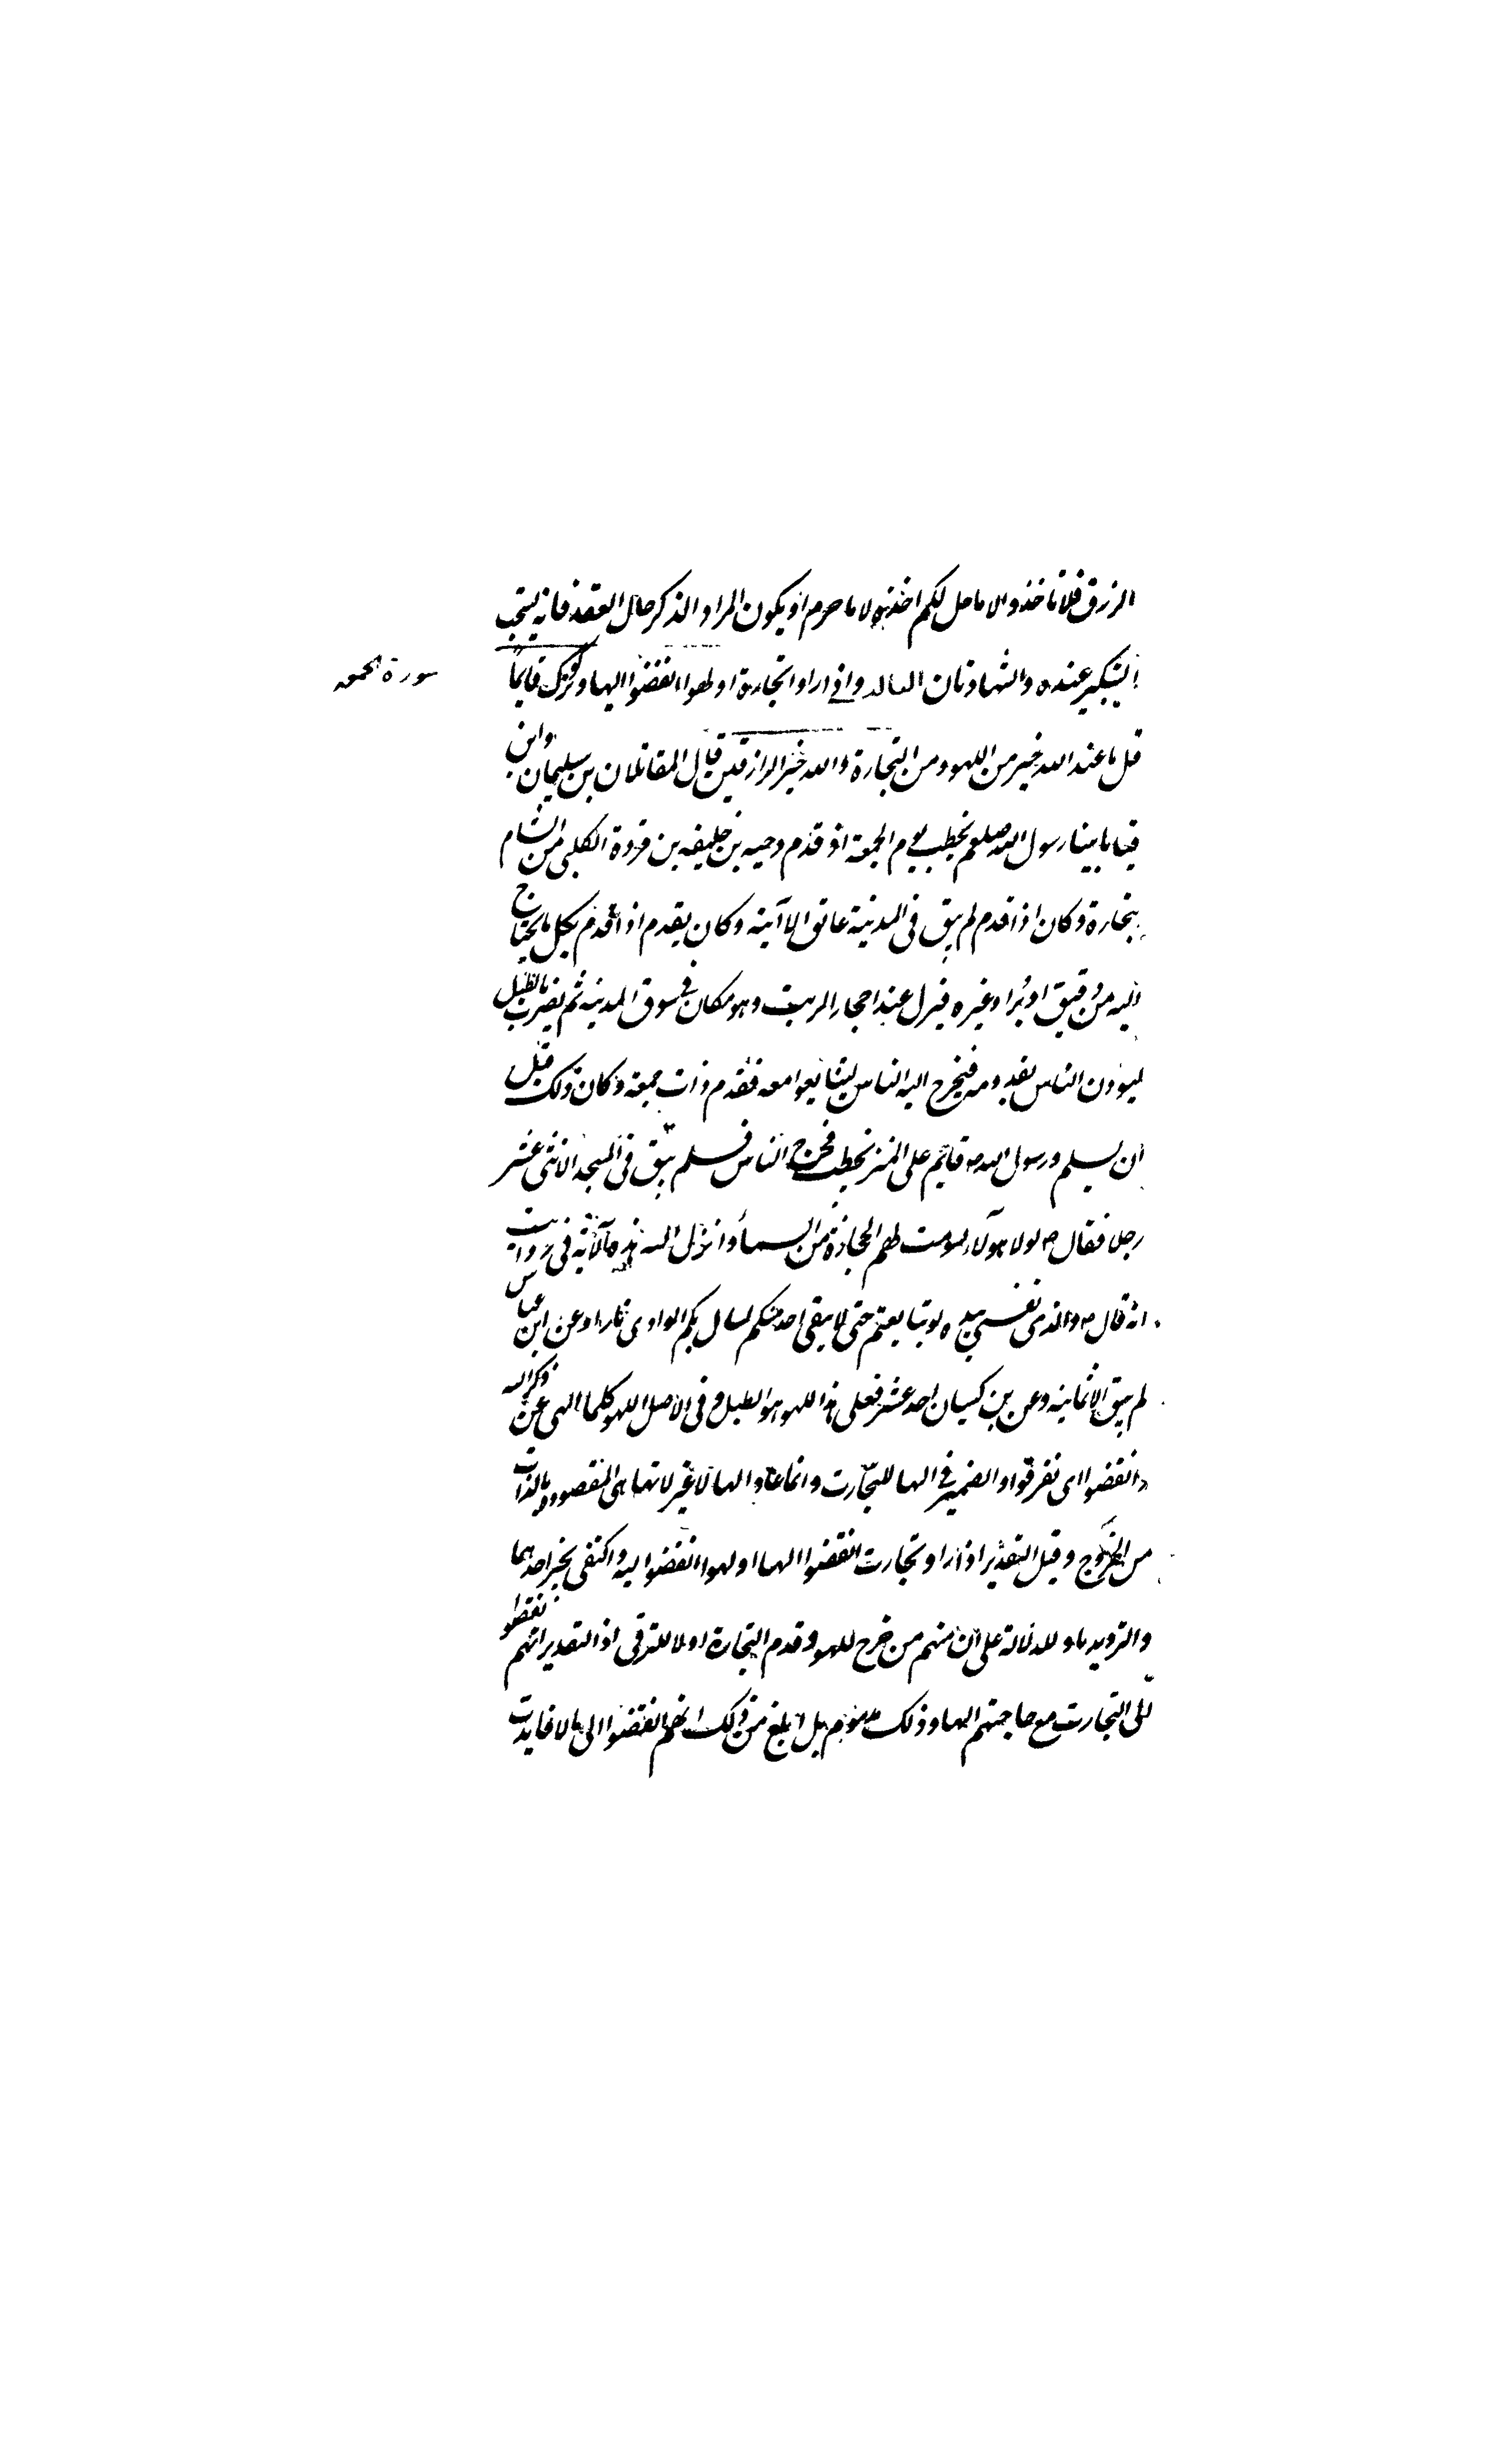 الرزق فلا تاخذوا الا ما حل لكم اخذه لا ما حرم او يكون المراد الذكر حال العقد فانه يستحب
التكبير عنده والشهادتان الثالثه واذا راوا تجارة او لهوا انفضوا اليها وتركوك قايما
سورة الجمعه
قل ما عند الله خير من اللهو ومن التجارة والله خير الرازقين قال المقاتلان بن سليمان وابن
قيا بينا رسول الله صلعم يخطب يوم الجمعة اذ قدم دحيه بن خليفه بن فروة الكلبى من الشام
بتجارة وكان اذا قدم لم يبق فى المدينة عاتق الا آتيته وكان يقدم اذا قدم بكل ما يحتاج
اليه من دقيق او بُر او غيره فينزل عند احجار الزيت وهو مكان فى سوق المدينه ثم يضرب بالطبل
ليؤذن الناس بقدومه فيخرج اليه الناس ليتبايعوا معه فقدم ذات جمعة وكان ذلك قبل
ان يسلم ورسول الله ص قايم على المنبر يخطب فخرج الناس فلم يبق فى المسجد الا اثنى عشر
رجلا فقال ص لولا هولآء لسومت لهم الحجارة من السمآء وانزل الله هذه الآية فى روايت
انه قال ص والذى نفسى بيده لو تتابعتم حتى لا يبقى احد منكم لسال بكم الوادى نارا وعن ابن عباس
لم يبق الا ثمانيه وعن بن كيسان احد عشر فعلى هذا اللهو هو الطبل و فى الاصل اللهو كلما الهى عن ذكر الله
وانفضوا اى تفرقوا والضمير فى الها للتجارت وانما عاد الها لا غير لانها هى المقصوده بالذات
من الخروج وقيل التقدير اذا راو تجارت انفضوا الها او لهوا انفضوا ليه واكتفى بخبر احدهما
والترديد باو للدلالة على ان منهم من خرج للهو وقدم التجارة اولا للترقى اذ التقدير انهم انفضوا
الى التجارت مع حاجتهم الها وذلك مذموم بل ابلغ من ذلك انهم انفضوا الى ما لا فايدت